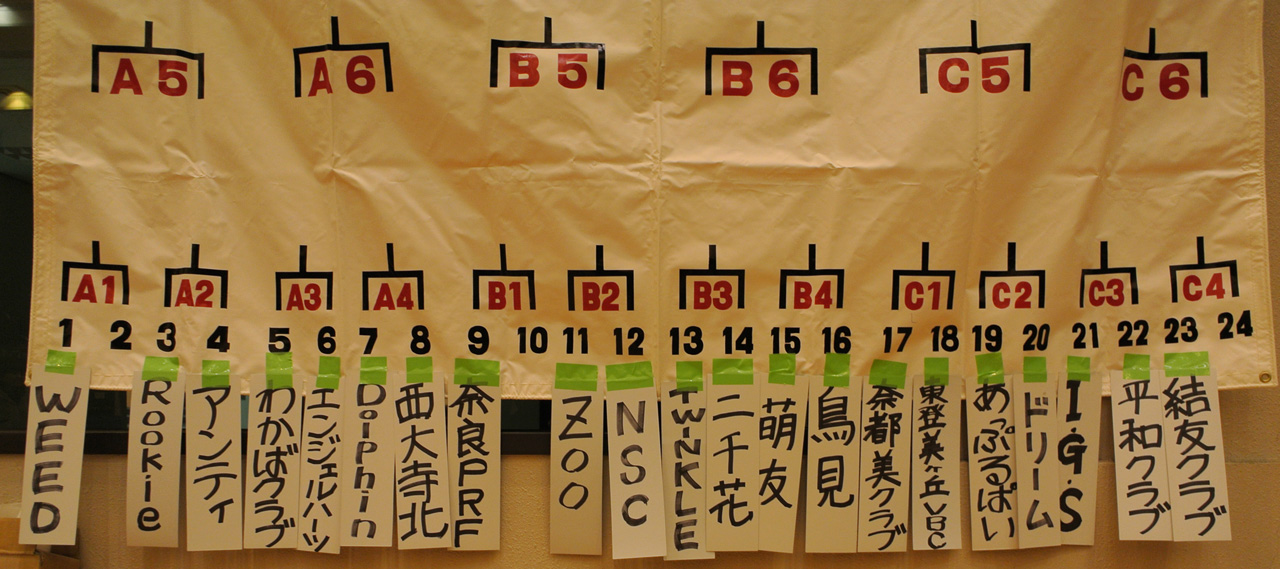 A5 A6 B5 B6 C5 C6
A1 A2 A3 A4 B1 B2 B3 B4 C1 C2 C3 C4
1 2 3 4 5 6 7 8 9 10 11 12 13 14 15 16 17 18 19 20 21 22 23 24
WEED
Rookie
アンティ
わかばクラブ
エンジェルハーツ
Dolphin
西大寺北
奈良PRF
ZOO
NSC
TWINKLE
二千花
萌友
鳥見
奈都美クラブ
東登美ヶ丘VBC
あっぷるぱい
ドリーム
I.G.S
平和クラブ
結友クラブ